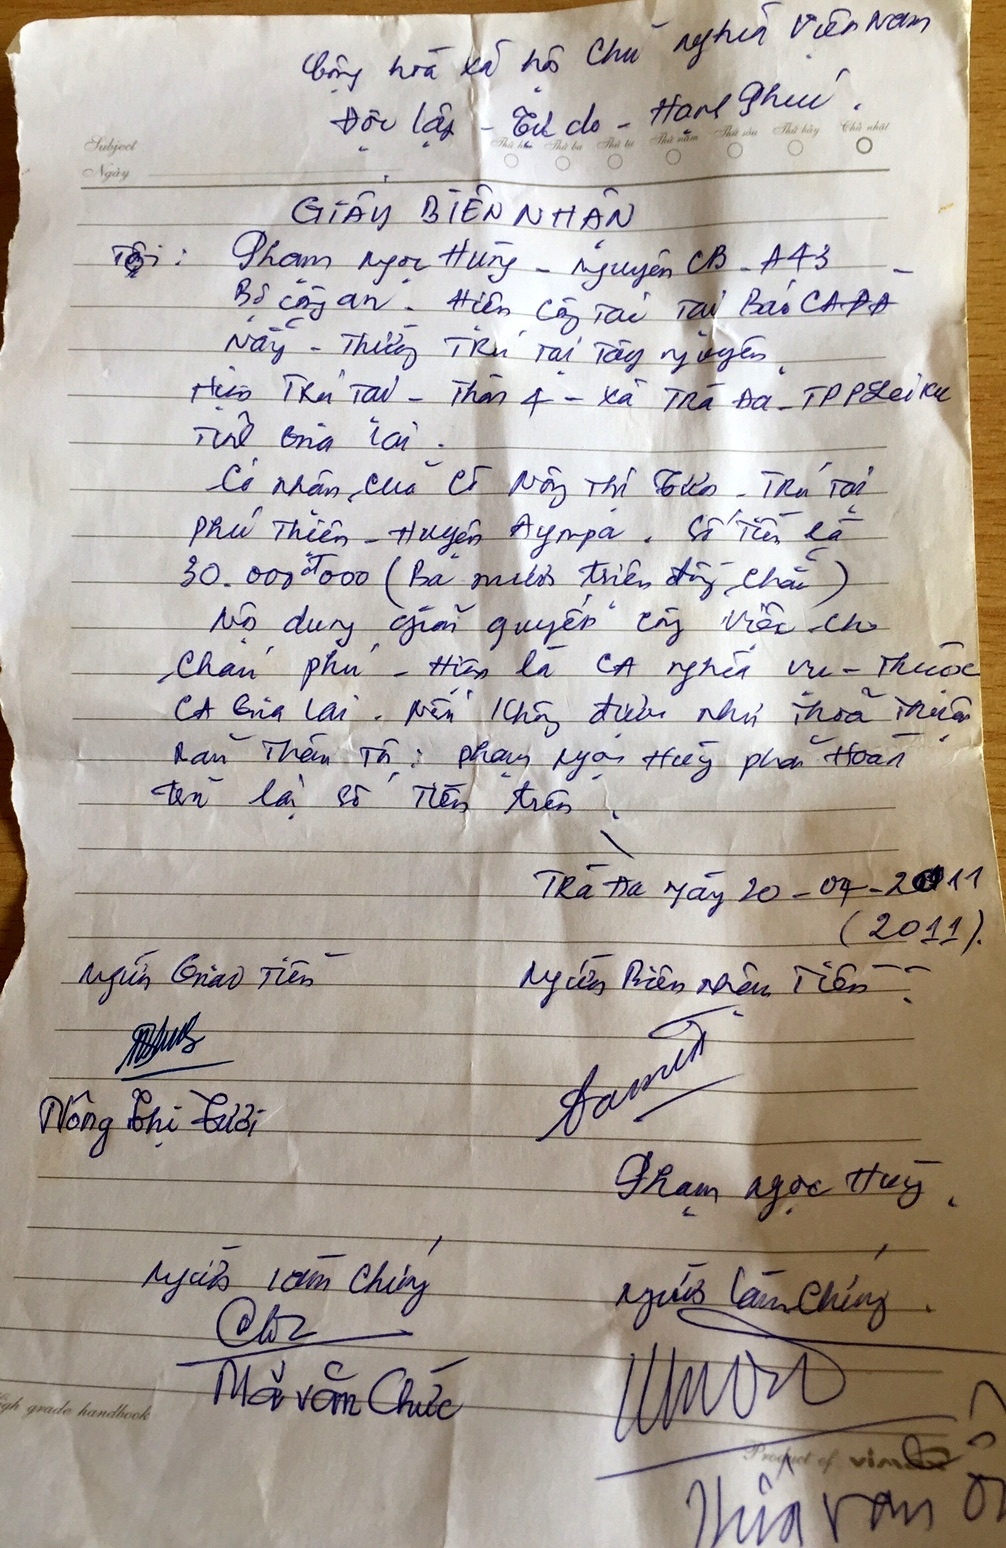 Cộng hoà xã hội Chủ nghĩa Việt Nam
Độc lập - Tự do - Hạnh Phúc.
Subject
Thứ hai Thứ ba Thứ tư Thứ năm Thứ sáu Thứ bảy Chủ nhật
Ngày
GIẤY BIÊN NHẬN
Tôi: Phạm Ngọc Hùng - Nguyên CB - A43 -
Bộ công an. Hiện công tác tại Báo CA ĐÀ
Nẵng - Thường Trú tại Tây Nguyên,
Hiện Trú Tại - Thôn 4 - xã Trà Đa - TP PLeiKu
Tỉnh Gia Lai.
Có nhận của Cô Nông Thị Tươi - Trú Tại
Phú Thiện - Huyện Aynpa. Số Tiền là
30.000đ000 (Ba mươi triệu đồng chẵn)
Nội dung giải quyết công việc cho
Cháu phú - Hiện là CA nghĩa vụ - Thuộc
CA Gia Lai. Nếu không được như Thoả Thuận
Bản Thân Tôi: Phạm Ngọc Hùng phải Hoàn
trả lại số Tiền trên.
Trà Đa ngày 20-04-2011
(2011).
Người Giao Tiền
Người Biên nhận Tiền
Nông Thị Tươi
Phạm Ngọc Hùng.
Người làm Chứng
Người làm Chứng.
Mã Văn Chức
High grade handbook
Product of
Văn